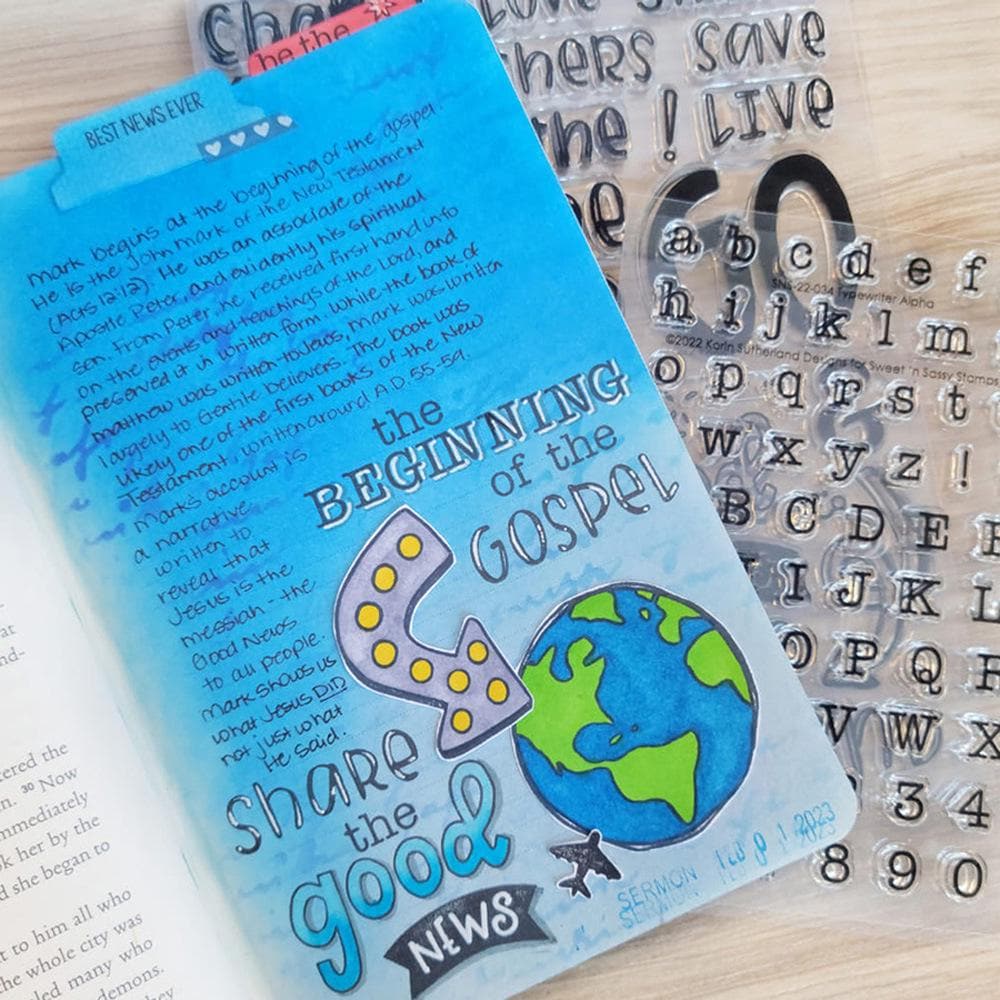 be the
BEST NEWS EVER
Mark begins at the beginning of the gospel.
He is the John Mark of the New Testament
(Acts 12:12). He was an associate of the
Apostle Peter, and evidently his spiritual
son. From Peter he received first hand info
on the events and teachings of the Lord, and
preserved it in written form. While the book of
Matthew was written to Jews, Mark was written
largely to Gentile believers. The book was
likely one of the first books of the New
Testament, written around A.D. 55-59.
Mark's account is
a narrative
written to
reveal that
Jesus is the
Messiah - the
Good News
to all people.
Mark shows us
what Jesus DID
not just what
He said.
the
BEGINNING
of the
GOSPEL
share
the
good
NEWS
SERMON
SERMON
2023
save
the ! LIVE
GO
a b c d e f
SNS-22-034 Typewriter Alpha
h i j k l m
©2022 Korin Sutherland Designs for Sweet 'n Sassy Stamps
o p q r s t
w x y z !
B C D E F
I J K L
O P Q R
V W X
3 4
8 9 0
at
nd-
tered the
n. 30 Now
mmediately
k her by the
d she began to
t to him all who
he whole city was
led many who
demons.
they